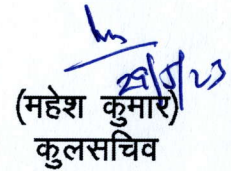 29/5/23
(महेश कुमार)
कुलसचिव